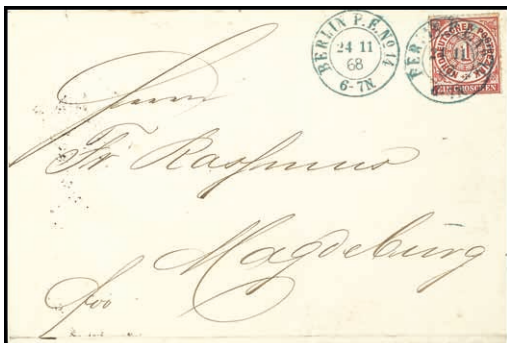 BERLIN P.E. No 14
24 11
68
6-7N.
NORDDEUTSCHER POSTBEZIRK
1
EIN GROSCHEN
Herrn
Fr. Rasmus
Magdeburg.
fco